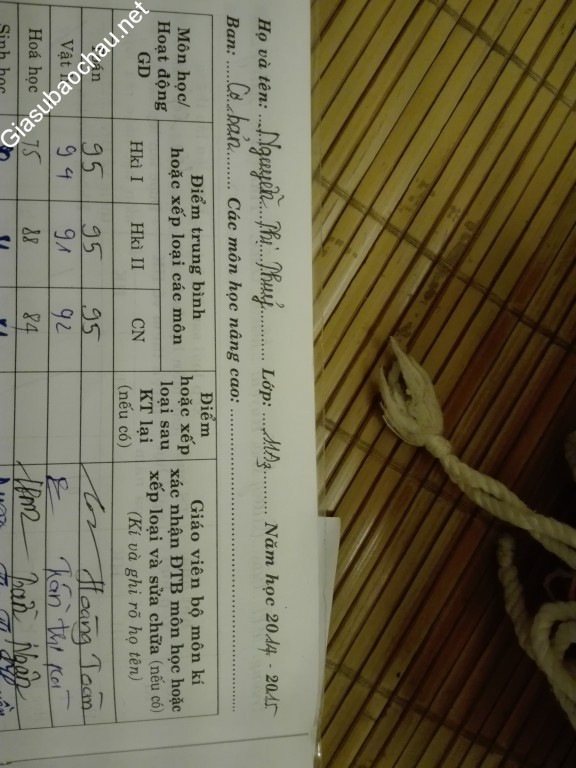 Giasubaochau.net
Họ và tên: Nguyễn Thị Thuỷ Lớp: Năm học 2014 - 2015
Ban: Cơ bản Các môn học nâng cao:
Môn học/
Hoạt động
GD
Điểm trung bình
hoặc xếp loại các môn
Hkì I
Hkì II
CN
Điểm
hoặc xếp
loại sau
KT lại
(nếu có)
Giáo viên bộ môn kí
xác nhận ĐTB môn học hoặc
xếp loại và sửa chữa (nếu có)
(Kí và ghi rõ họ tên)
95 95 95 Hoàng Toàn
Vật 94 91 92 Trần Thị
Hoá học 75 88 84
Sinh học